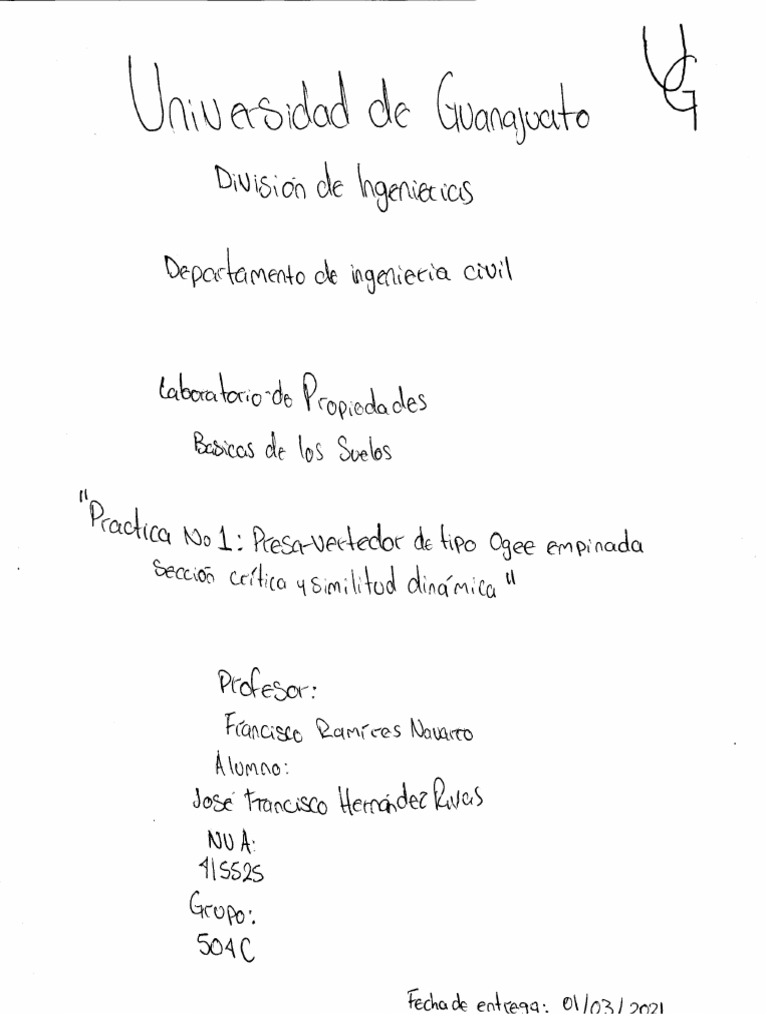 UG
Universidad de Guanajuato
División de Ingenierias
Departamento de ingenieria civil
Laboratorio de Propiedades
Basicas de los Suelos
"Practica No 1: Presa-vertedor de tipo Ogee empinada
Sección crítica y similitud dinámica"
Profesor:
Francisco Ramíres Navarro
Alumno:
José Francisco Hernández Rivas
NUA:
415525
Grupo:
504C
Fecha de entrega: 01/03/2021